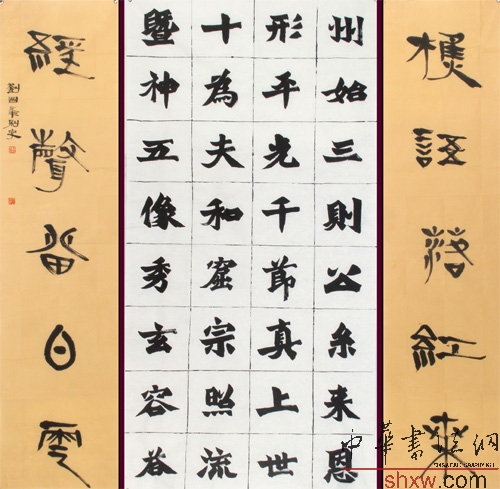 樵語落紅葉
州始三則公糸来恩
形平光千節真上世
十為夫和窟宗照流
暨神五像秀玄容谷
經聲留白雲
中華書法網
shxw.com